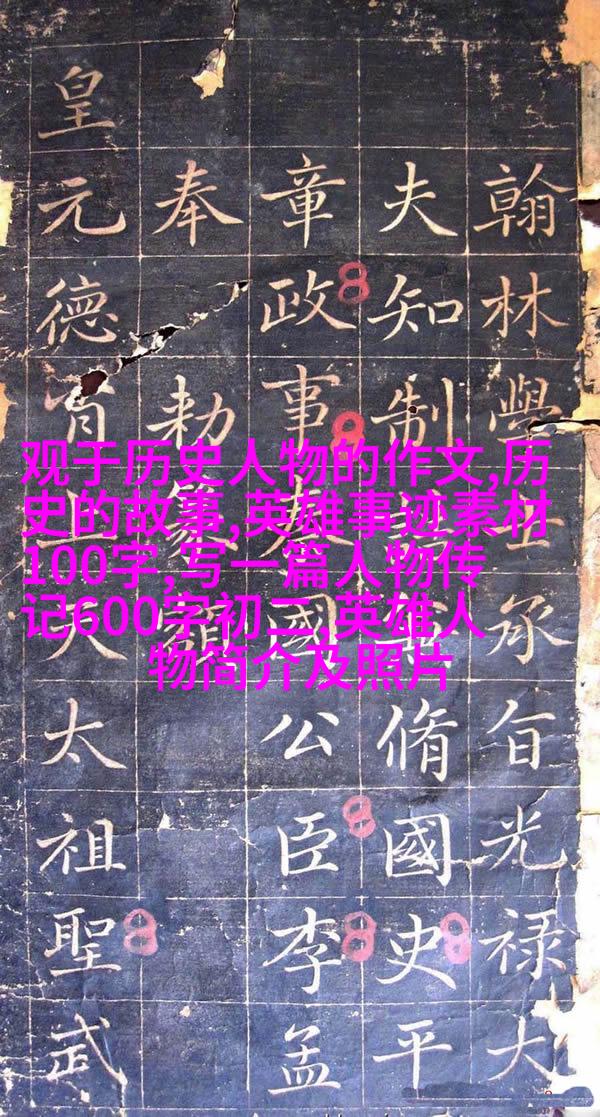 观于历史人物的作文,历
史的故事,英雄事迹素材
100字,写一篇人物传
记600字初二,英雄人
物简介及照片
翰林學士承旨光禄大
夫知制脩國史平
章政事秦國公臣李孟
奉勅篆額
皇元德肖上天太祖聖武